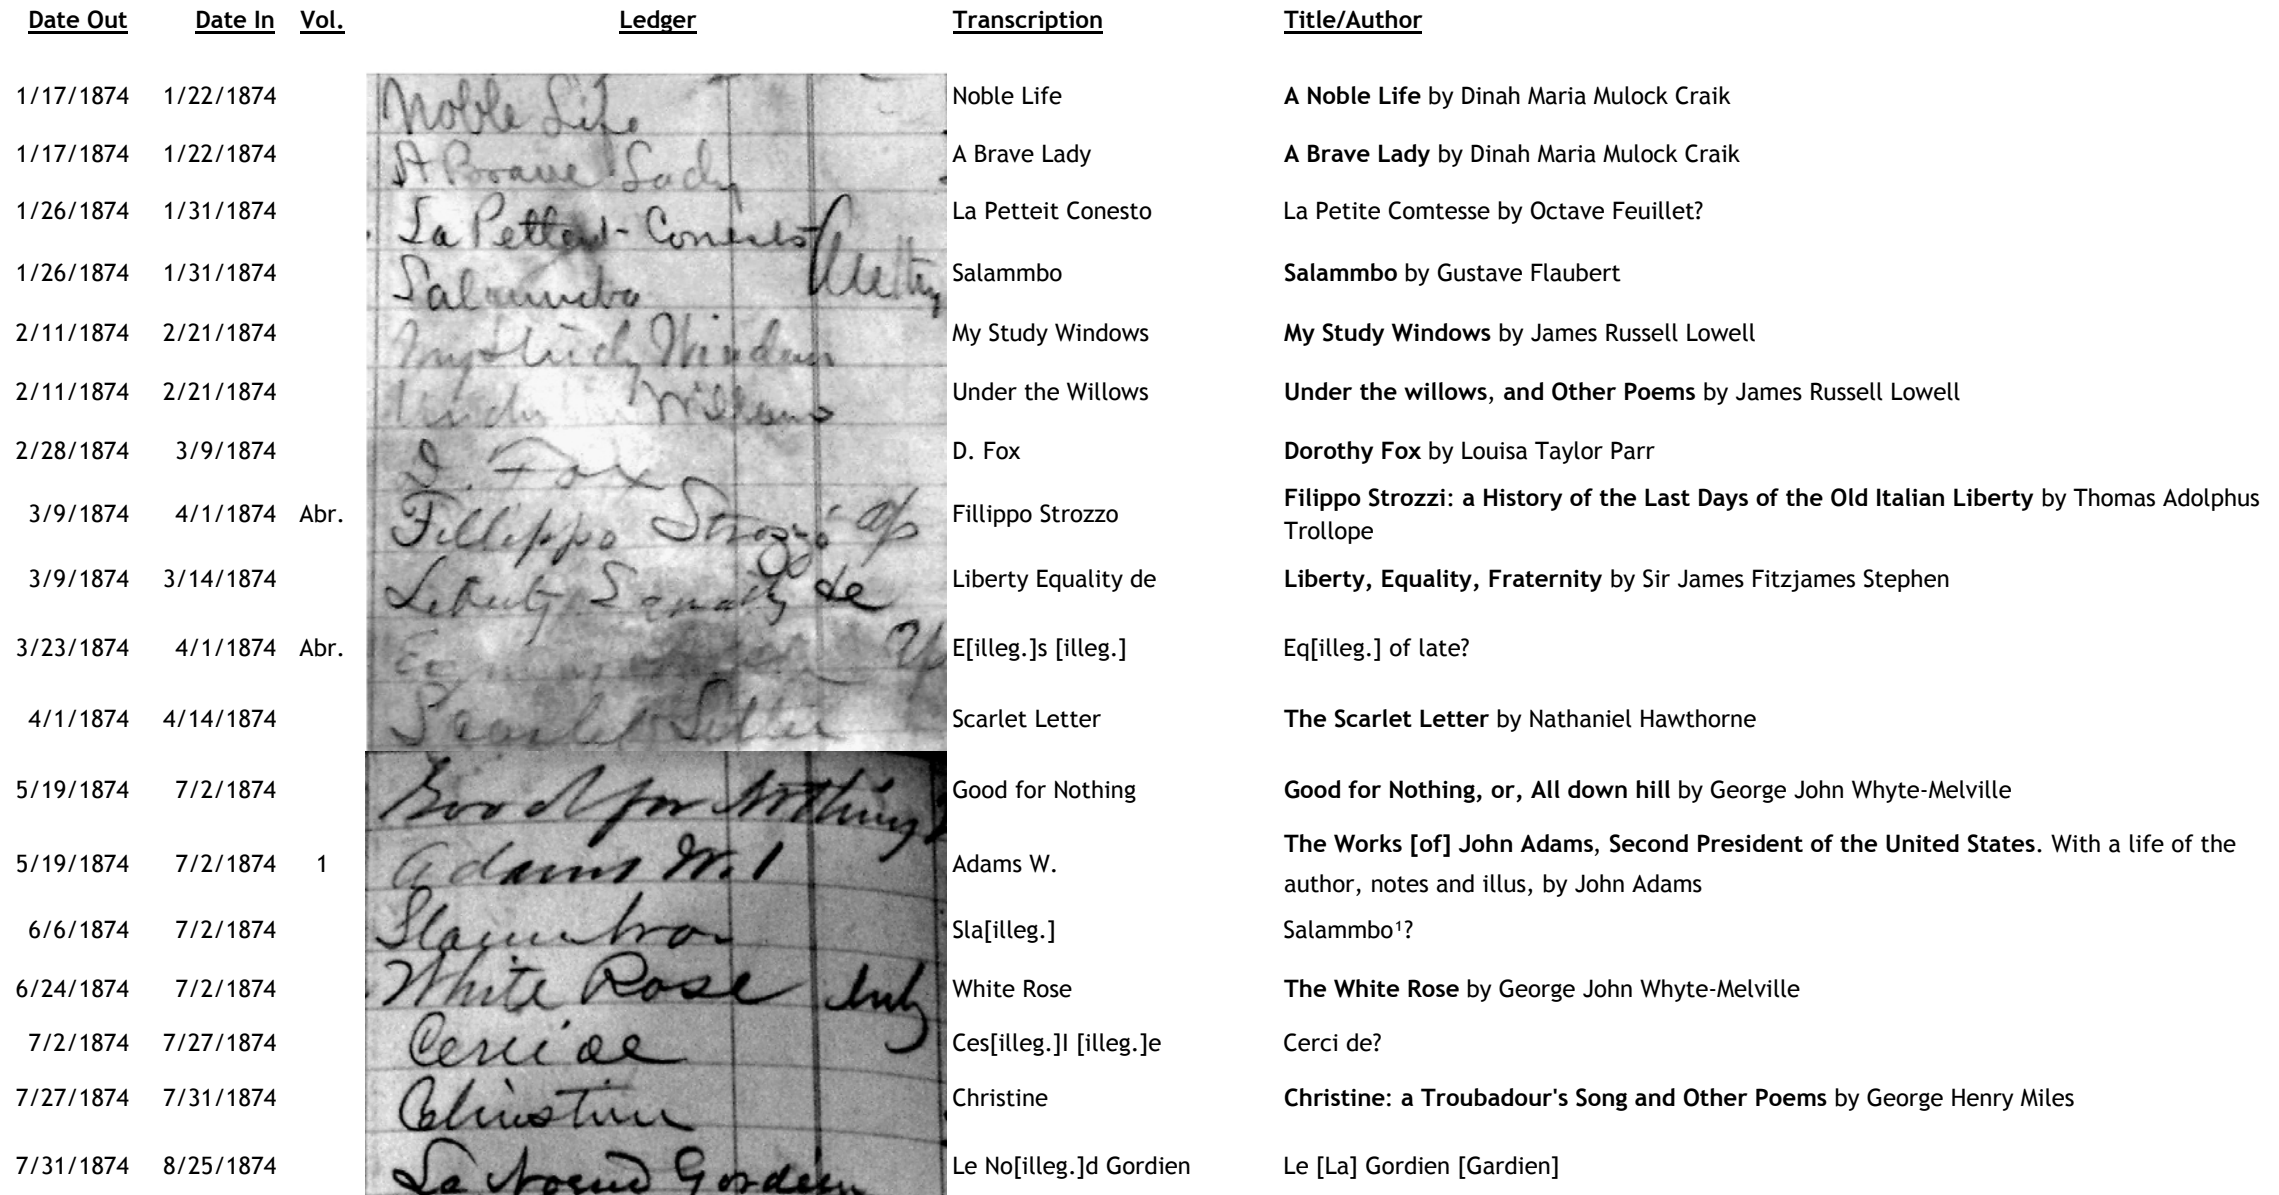 Date Out Date In Vol. Ledger Transcription Title/Author
1/17/1874 1/22/1874 Noble Life Noble Life A Noble Life by Dinah Maria Mulock Craik
1/17/1874 1/22/1874 A Brave Lady A Brave Lady A Brave Lady by Dinah Maria Mulock Craik
1/26/1874 1/31/1874 La Petteit - Conesto La Petteit Conesto La Petite Comtesse by Octave Feuillet?
1/26/1874 1/31/1874 Salammbo Salammbo Salammbo by Gustave Flaubert
2/11/1874 2/21/1874 My Study Windows My Study Windows My Study Windows by James Russell Lowell
2/11/1874 2/21/1874 Under Willows Under the Willows Under the willows, and Other Poems by James Russell Lowell
2/28/1874 3/9/1874 D. Fox D. Fox Dorothy Fox by Louisa Taylor Parr
3/9/1874 4/1/1874 Abr. Fillippo Strozzi Ap Fillippo Strozzo Filippo Strozzi: a History of the Last Days of the Old Italian Liberty by Thomas Adolphus
Trollope
3/9/1874 3/14/1874 Liberty Equality de Liberty Equality de Liberty, Equality, Fraternity by Sir James Fitzjames Stephen
3/23/1874 4/1/1874 Abr. E[illeg.]s [illeg.] Eq[illeg.] of late?
4/1/1874 4/14/1874 Scarlet Letter Scarlet Letter The Scarlet Letter by Nathaniel Hawthorne
5/19/1874 7/2/1874 Good for Nothing Good for Nothing Good for Nothing, or, All down hill by George John Whyte-Melville
5/19/1874 7/2/1874 1 Adams W. 1 Adams W. The Works [of] John Adams, Second President of the United States. With a life of the
author, notes and illus, by John Adams
6/6/1874 7/2/1874 Sla[illeg.] Salammbo¹?
6/24/1874 7/2/1874 White Rose July White Rose The White Rose by George John Whyte-Melville
7/2/1874 7/27/1874 Ces[illeg.]I [illeg.]e Cerci de?
7/27/1874 7/31/1874 Christine Christine: a Troubadour's Song and Other Poems by George Henry Miles
7/31/1874 8/25/1874 La Noeud Gordien Le No[illeg.]d Gordien Le [La] Gordien [Gardien]